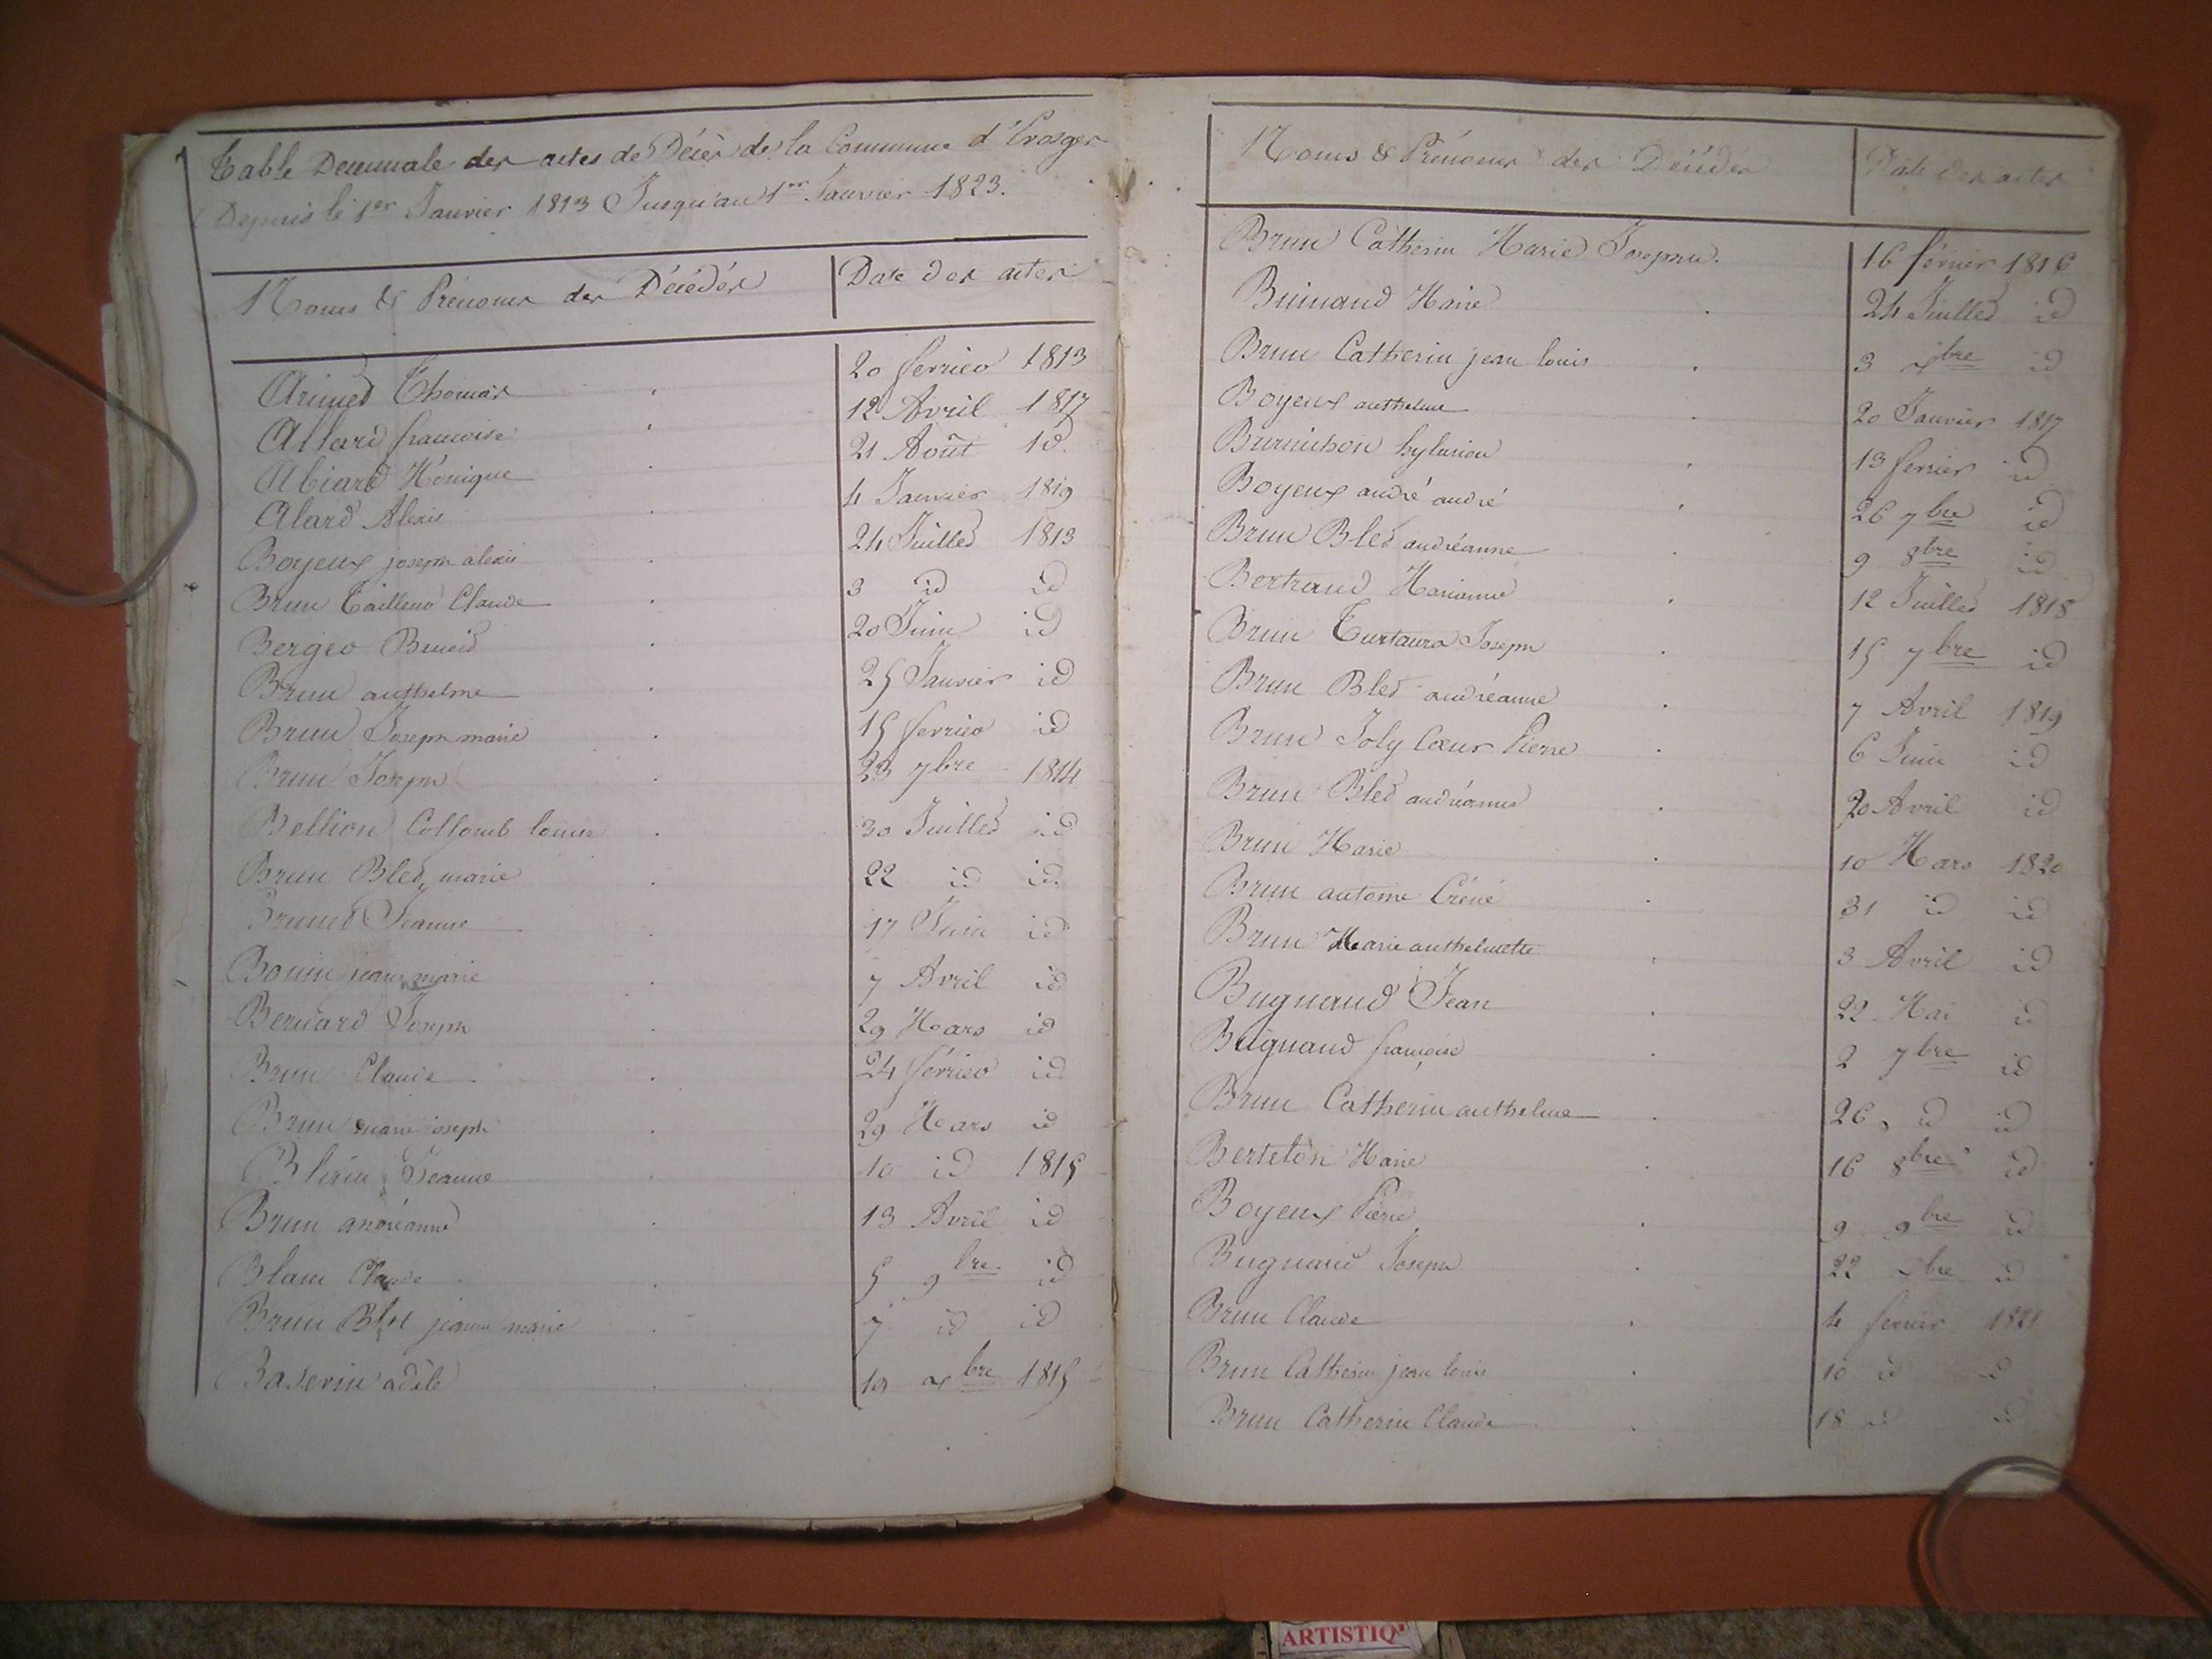 Table Decennale des actes de Décès de la Commune d'
Depuis le 1er Janvier 1813 Jusqu'au 1er Janvier 1823.
Noms & Prénoms des Décédés Date des actes
Thomas 20 fevrier 1813
Allard francoise 12 Avril 1817
Abiard Monique 21 Août id
Alard Alexis 4 Janvier 1819
Boyeux joseph alexis 24 Juillet 1813
Brun Tailleur Claude 3 id id
Berger Benoid 20 Juin id
Brun anthelme 25 Janvier id
Brun Joseph marie 15 fevrier id
Brun Joseph 23 7bre 1814
Bellion Collomb louise 30 Juillet id
Brun Bled marie 22 id id.
Brunet Jeanne 17 Juin id
Bonin jean marie 7 Avril id
Bernard Joseph 29 Mars id
Brun Claude 24 févrieo id
Brun marie joseph 29 Mars id
Jeanne 10 id 1815
Brun andréanne 13 Avril id
Blanc Claude 5 9bre id
Brun Blet jeanne marie 7 id id
Baserin adèle 19 xbre 1815
Noms & Prénoms des Décédés Date des actes
Brun Catherin Marie Josephe. 16 février 1816
Marie 24 Juillet id
Brun Catherin jean louis 3 xbre id
Boyeux anthelme 20 Janvier 1817
Burnichon hylarion 13 fevrier id
Boyeux andré andré 26 7bre id
Brun Bled andréanne 9 8bre id
Bertrand Marianne 12 Juillet 1818
Brun Joseph 15 7bre id
Brun Bled andréanne 7 Avril 1819
Brun Joly Cœur Pierre 6 Juin id
Brun Bled andréanne 20 Avril id
Brun Marie 10 Mars 1820
Brun antoine 31 id id
Brun Marie anthelmette 3 Avril id
Bugnand Jean 22 Mai id
Bugnand françoise 2 7bre id
Brun Catherin anthelme 26 id id
Berteton Marie 16 8bre id
Boyeux Pierre 9 9bre id
Bugnand Joseph 22 xbre id
Brun Claude 4 fevrier 1821
Brun Catherin jean louis 10 id id
Brun Catherin Claude 18 id id
ARTISTIQ